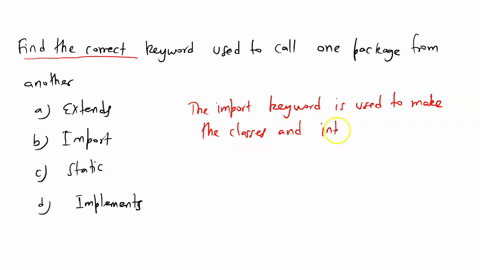 Find the correct keyword used to call one package from
another
a) Extends
b) Import
c) Static
d) Implements
The import keyword is used to make
the classes and int